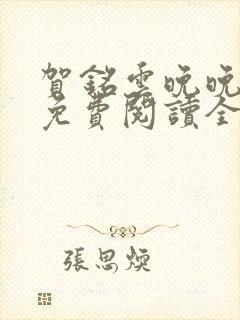 賀銘雲晚晚
免費閱讀全
張思煥